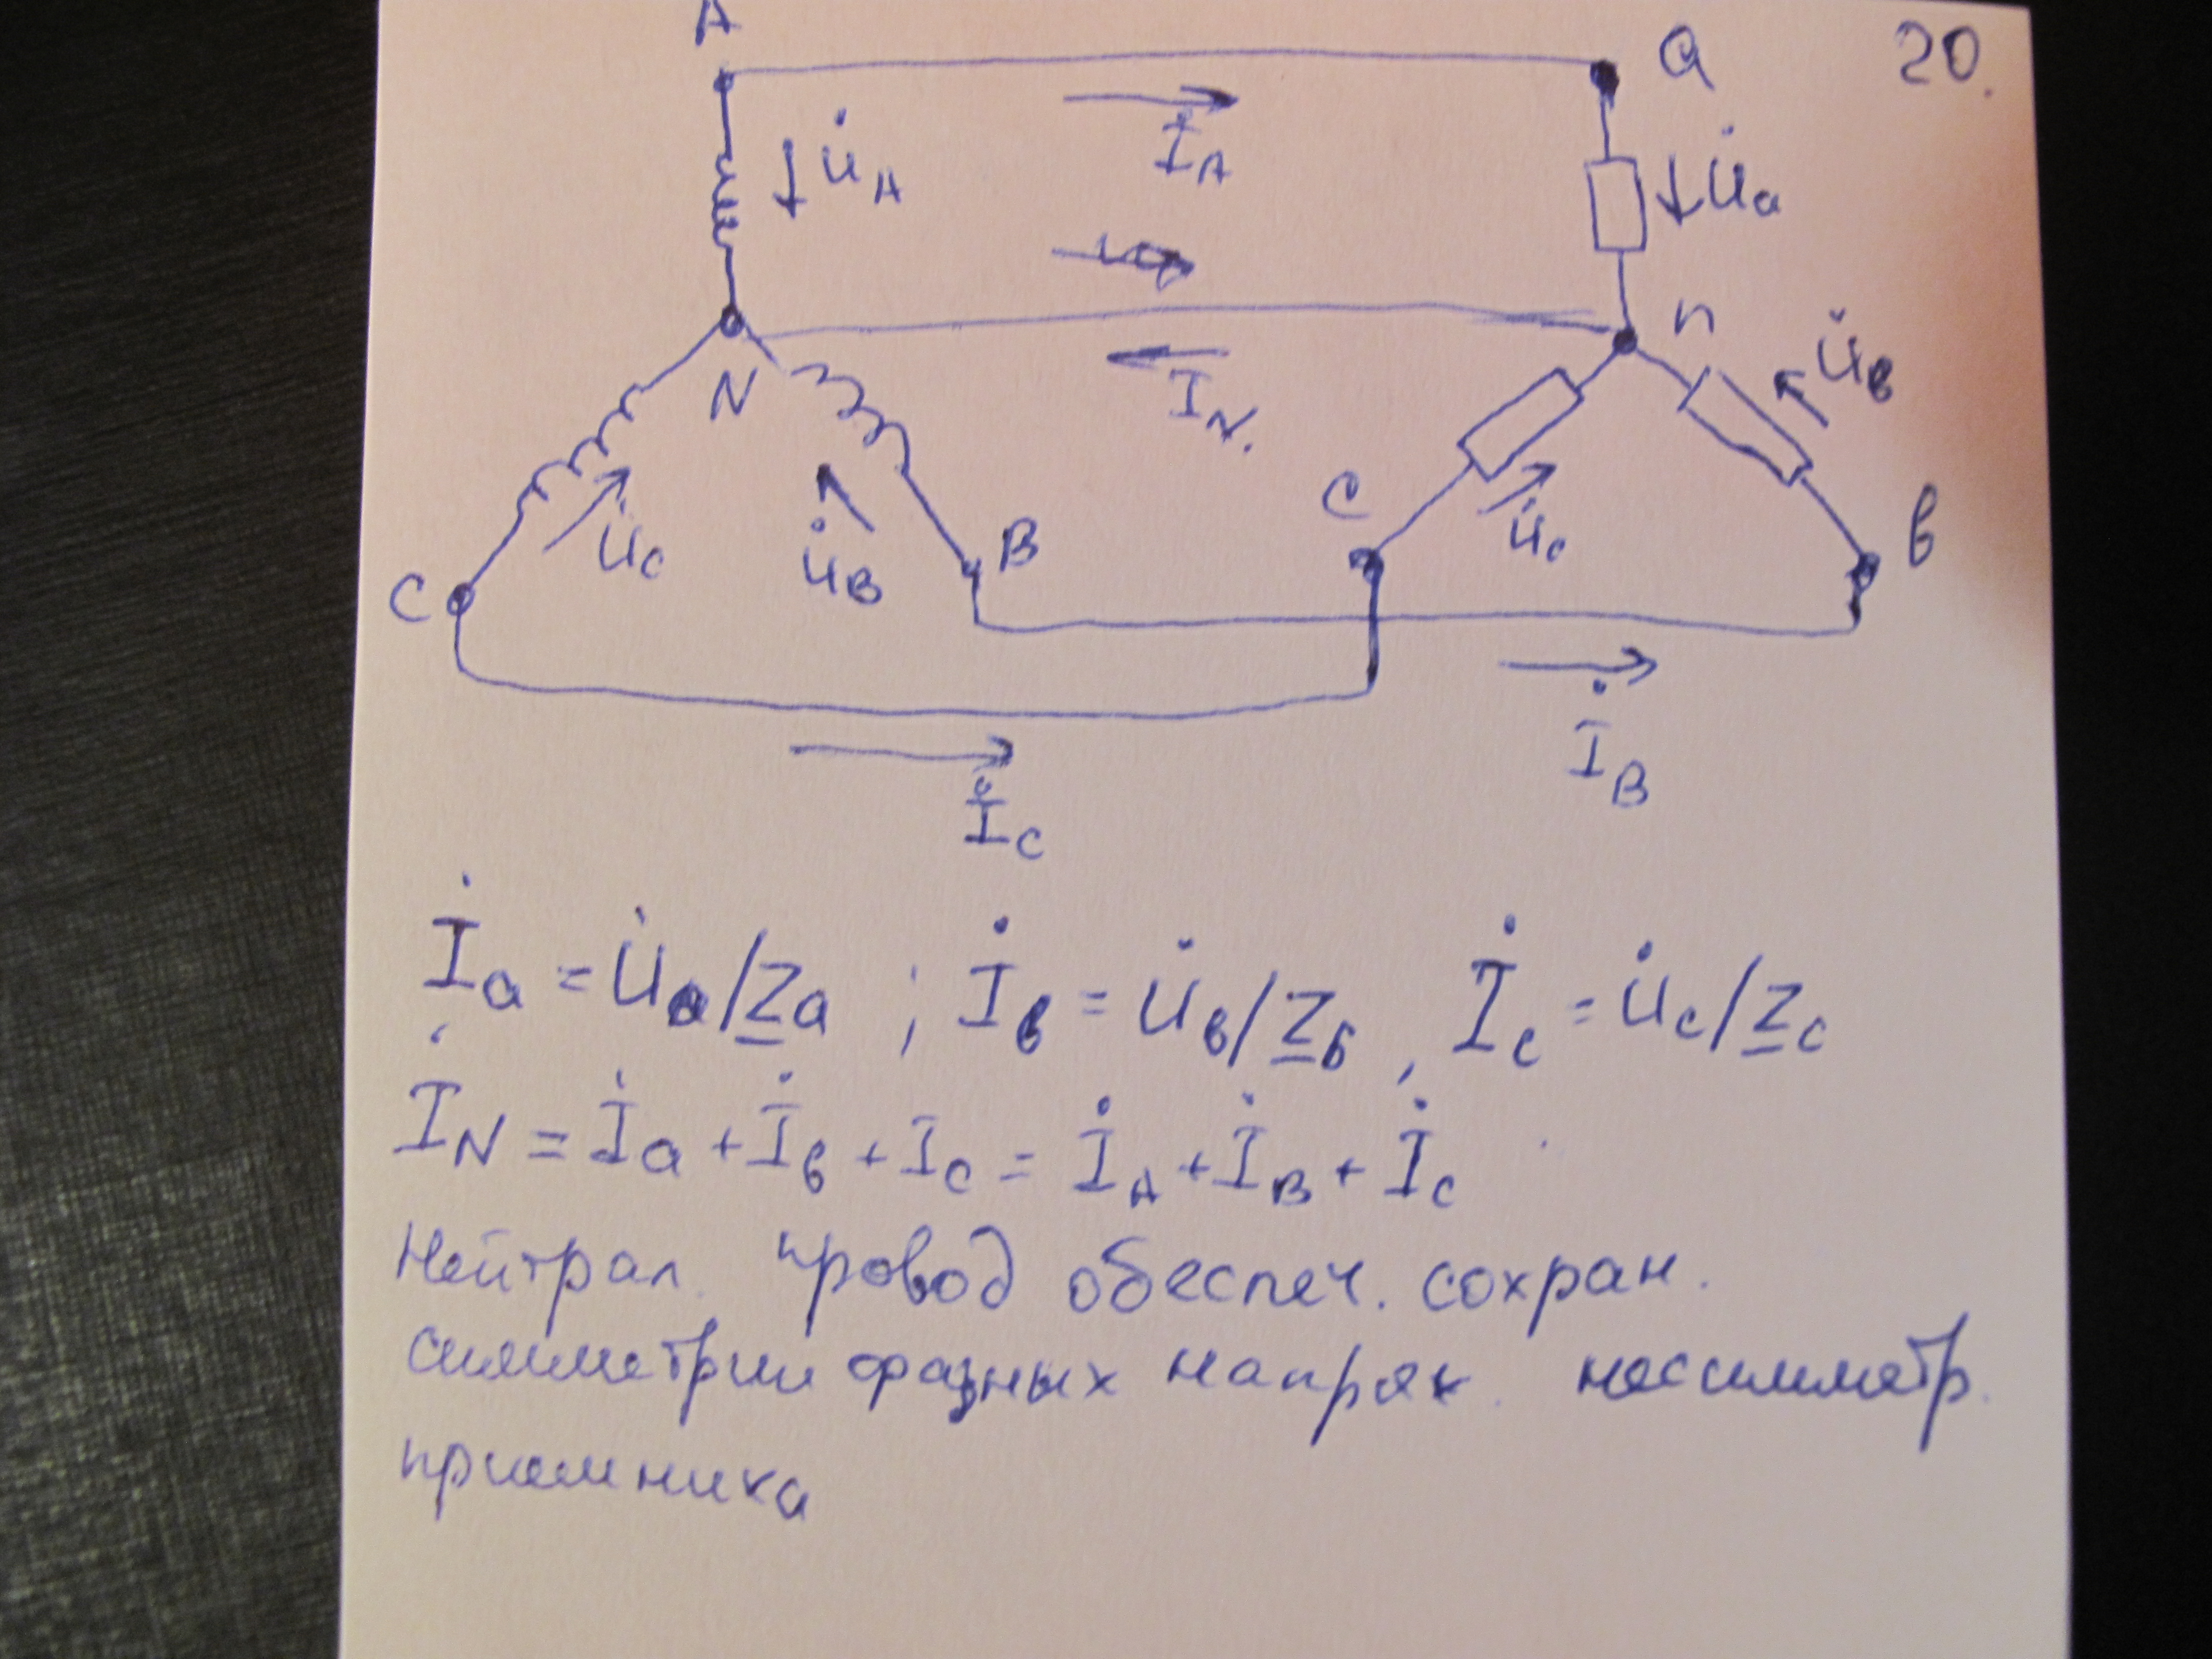 A
a
20.
İ_A
U̇_A
U̇_a
n
U̇_в
N
I_N.
C
B
c
в
U̇_C
U̇_B
U̇_c
İ_B
İ_C
İ_a = U̇_a/Z_a ; İ_в = U̇_в/Z_б , İ_c = U̇_c/Z_c
İ_N = İ_a + İ_в + I_c = İ_A + İ_B + İ_C
Нейтрал. провод обеспеч. сохран.
симметрии фазных напряж. несимметр.
приемника